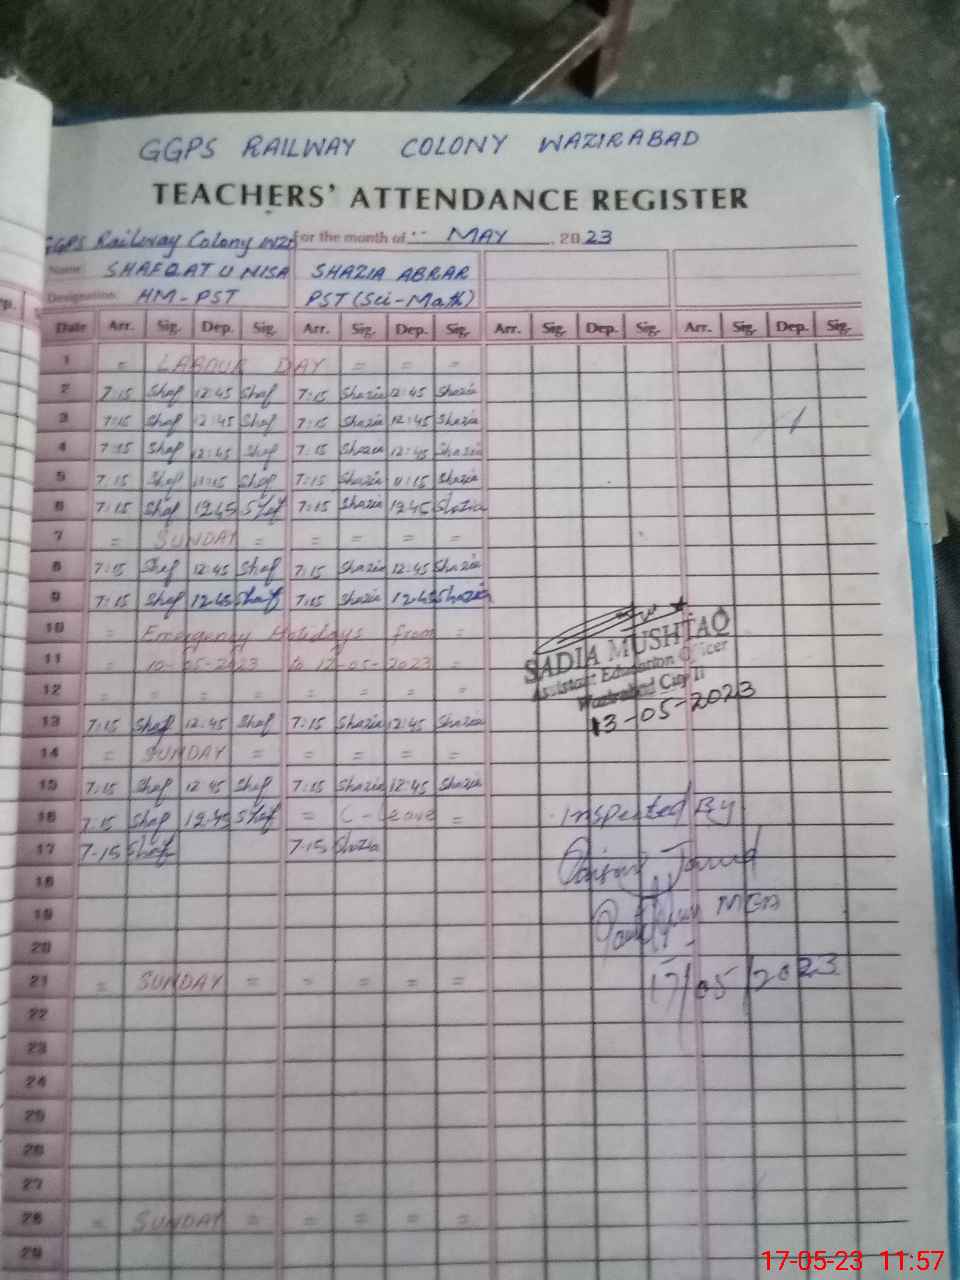 GGPS RAILWAY COLONY WAZIRABAD
TEACHERS' ATTENDANCE REGISTER
GGPS Railway Colony WZD for the month of MAY 2023
Name: SHAFQAT U NISA SHAZIA ABRAR
Designation: HM-PST PST (Sci-Math)
Date Arr. Sig. Dep. Sig. Arr. Sig. Dep. Sig. Arr. Sig. Dep. Sig. Arr. Sig. Dep. Sig.
1 = LABOUR DAY = = =
2 7:15 Shaf 12:45 Shaf 7:15 Shazia 12:45 Shazia
3 7:15 Shaf 12:45 Shaf 7:15 Shazia 12:45 Shazia
4 7:15 Shaf 12:45 Shaf 7:15 Shazia 12:45 Shazia
5 7:15 Shaf 11:15 Shaf 7:15 Shazia 11:15 Shazia
6 7:15 Shaf 12:45 Shaf 7:15 Shazia 12:45 Shazia
7 = SUNDAY = = = = =
8 7:15 Shaf 12:45 Shaf 7:15 Shazia 12:45 Shazia
9 7:15 Shaf 12:45 Shaf 7:15 Shazia 12:45 Shazia
10 = Emergency Holidays from =
11 = 10-05-2023 to 12-05-2023 =
12 = = = = = = = =
13 7:15 Shaf 12:45 Shaf 7:15 Shazia 12:45 Shazia
14 = SUNDAY = = = = =
15 7:15 Shaf 12:45 Shaf 7:15 Shazia 12:45 Shazia
16 7:15 Shaf 12:45 Shaf = C-Leave =
17 7-15 Shaf 7:15 Shazia
18
19
20
21 = SUNDAY = = = = =
22
23
24
25
26
27
28 = SUNDAY = = = = =
29
SADIA MUSHTAQ
Assistant Education Officer
Wazirabad City II
13-05-2023
Inspected By
MEA
17/05/2023
17-05-23 11:57